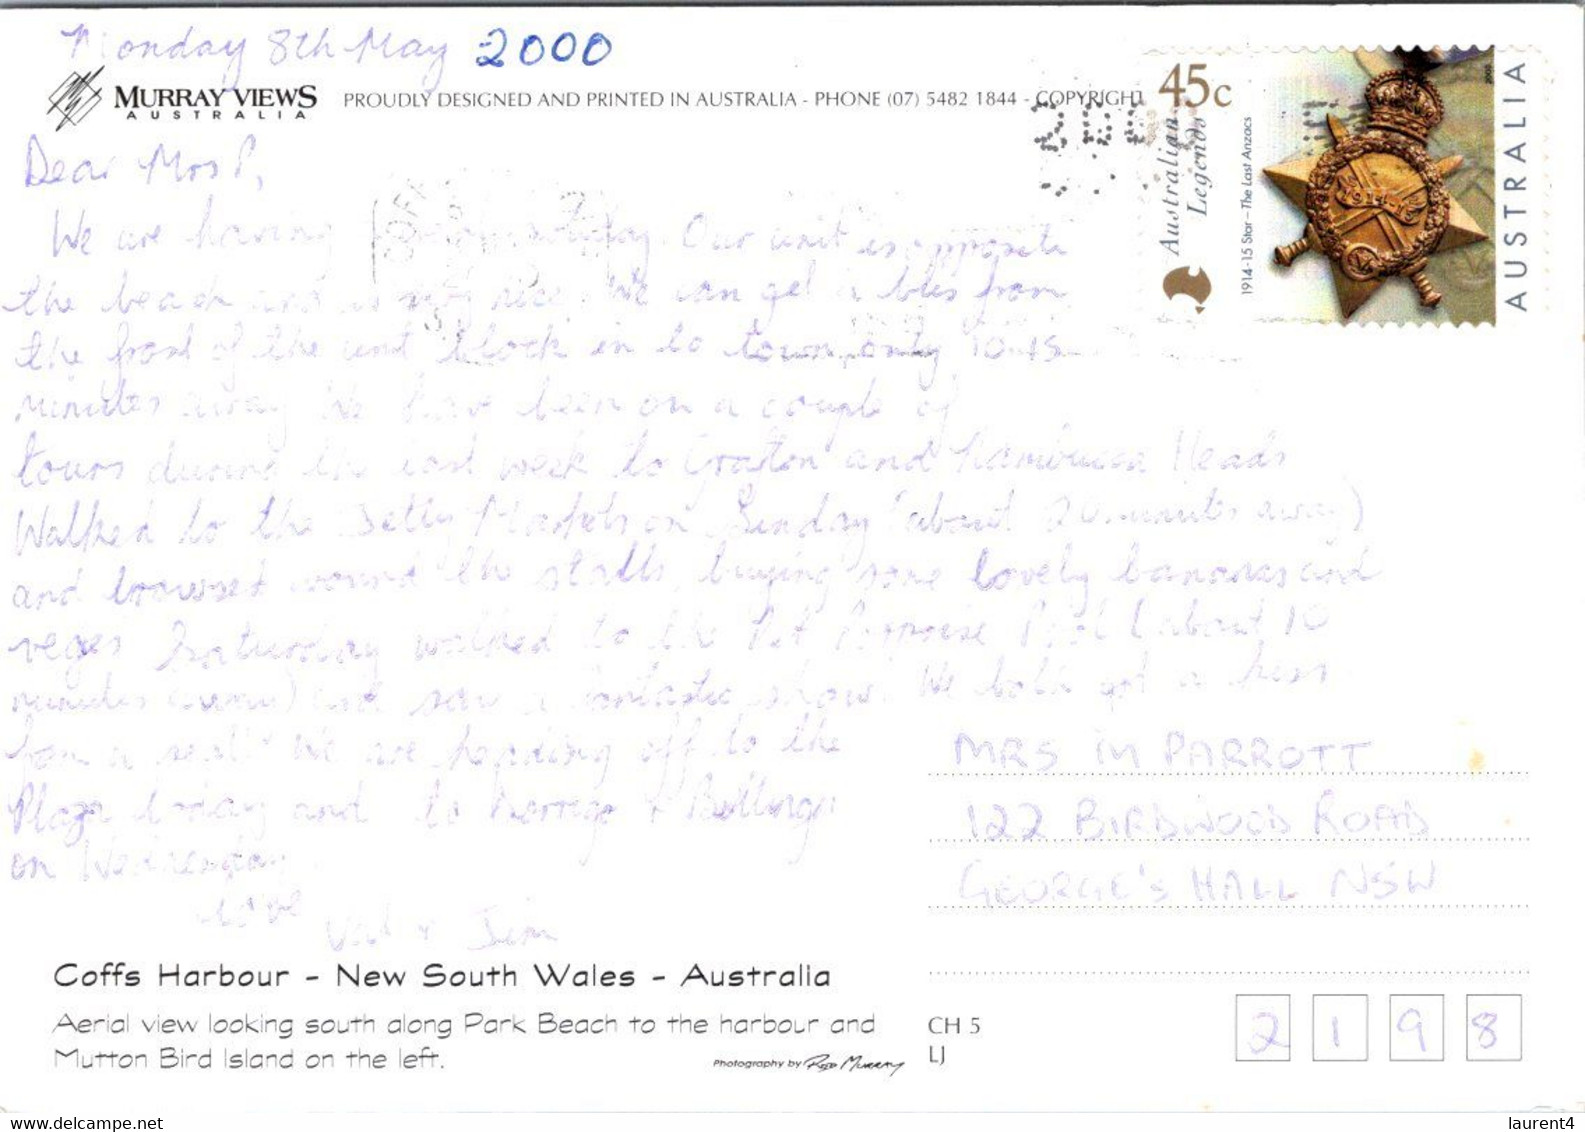 Monday 8th May 2000
MURRAY VIEWS
AUSTRALIA
PROUDLY DESIGNED AND PRINTED IN AUSTRALIA - PHONE (07) 5482 1844 - COPYRIGHT
45c
Australian
Legends
1914-15 Star – The Last Anzacs
AUSTRALIA
Dear Mrs P,
We are having holiday. Our unit is opposite
the beach and is very nice. We can get a bus from
the front of the unit block in to town, only 10-15
minutes away. We have been on a couple of
tours during the last week to Grafton and Nambucca Heads
Walked to the Jetty Markets on Sunday (about 20 minutes away)
and browsed around the stalls, buying some lovely bananas and
veges. Saturday walked to the Pet Porpoise Pool (about 10
minutes away) and saw a fantastic show. We both got a kiss
from a seal! We are heading off to the
Plaza today and to Dorrigo & Bellingen
on Wednesday.
Love
Val & Jim
MRS M PARROTT
122 BIRDWOOD ROAD
GEORGE'S HALL NSW
2198
Coffs Harbour - New South Wales - Australia
Aerial view looking south along Park Beach to the harbour and
Mutton Bird Island on the left.
Photography by
CH 5
LJ
www.delcampe.net
laurent4